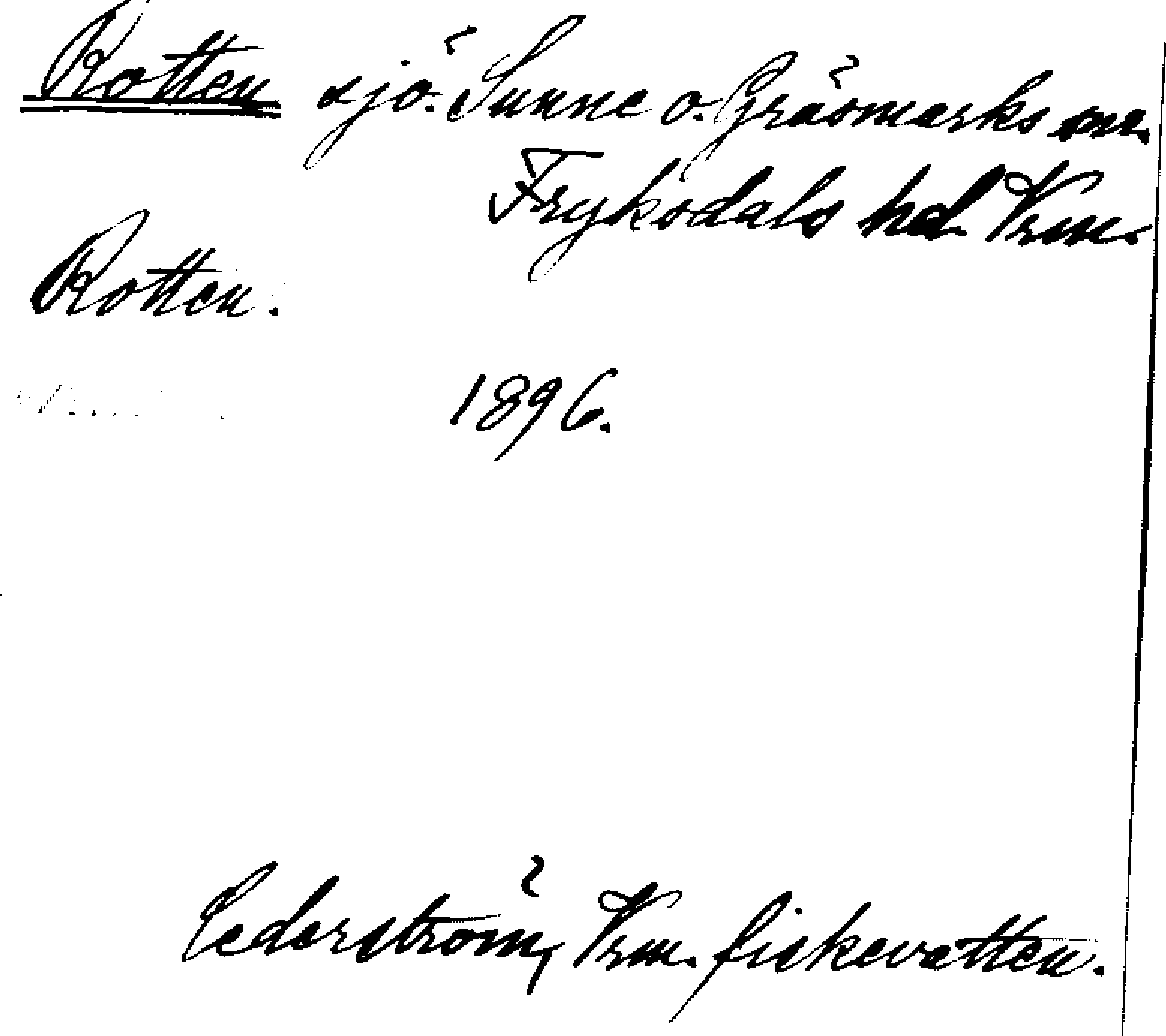 Rotten sjö. Sunne o. Gräsmarks snr.
Fryksdals hd. Vrm.
Rotten.
1896.
Cederström, Vrm. fiskevatten.